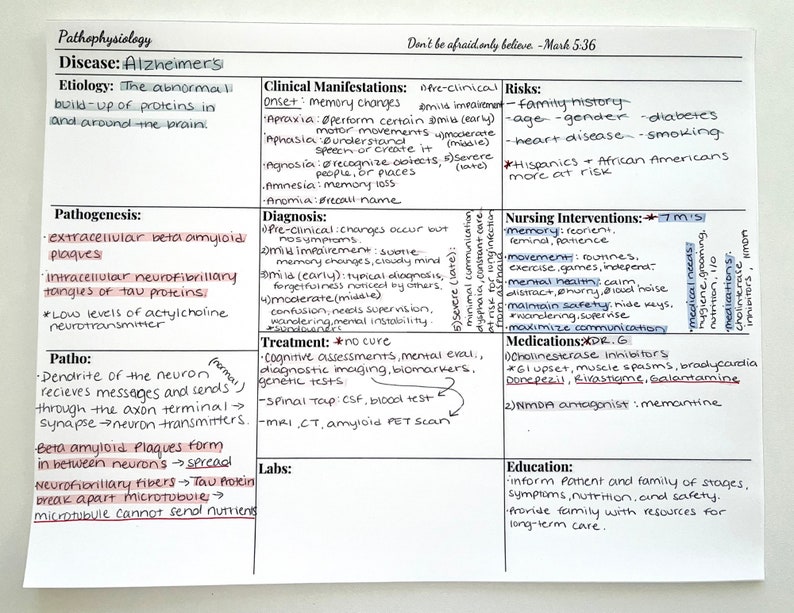 Pathophysiology
Don't be afraid, only believe. -Mark 5:36
Disease: Alzheimer's
Etiology: The abnormal
build-up of proteins in
and around the brain.
Clinical Manifestations:
Onset: memory changes
•Apraxia: Ø perform certain
motor movements
•Aphasia: Ø understand
speech or create it
•Agnosia: Ø recognize objects,
people, or places
•Amnesia: memory loss
•Anomia: Ø recall name
1) Pre-clinical
2) mild impairment
3) mild (early)
4) moderate
(middle)
5) severe
(late)
Risks:
- family history
- age - gender - diabetes
- heart disease - smoking
*Hispanics + African Americans
more at risk
Pathogenesis:
•extracellular beta amyloid
plaques
•intracellular neurofibrillary
tangles of tau proteins.
*Low levels of actylcholine
neurotransmitter
Diagnosis:
1) Pre-clinical: changes occur but
no symptoms.
2) mild impairment: subtle
memory changes, cloudy mind
3) mild (early): typical diagnosis,
forgetfulness noticed by others.
4) moderate (middle)
confusion, needs supervision,
wandering, mental instability.
*sundowners
5) severe (late):
minimal communication,
dysphagia, constant care,
at risk for lung infection
from
Nursing Interventions: * 7 M's
memory: reorient,
reminal, patience
•movement: routines,
exercise, games, independ.
•mental health: calm
distract, Ø hurry, Ø loud noise
•maintain safety: hide keys,
*wandering, supervise
•maximize communication
•medical needs:
hygiene, grooming,
nutrition, I/O
•medications:
cholinterase
inhibitors, NMDA
Patho:
•Dendrite of the neuron (normal)
recieves messages and sends
through the axon terminal →
synapse → neuron transmitters.
Beta amyloid Plaques form
in between neurons → spread
Neurofibrillary fibers → Tau Protein
break apart microtubule →
microtubule cannot send nutrients
Treatment: *no cure
•Cognitive assessments, mental eval.,
diagnostic imaging, biomarkers,
genetic tests
-spinal Tap: CSF, blood test
-MRI, CT, amyloid PET scan
Medications: *DR. G
1) Cholinesterase Inhibitors
*GI upset, muscle spasms, bradycardia
Donepezil, Rivastigme, Galantamine
2) NMDA antagonist: memantine
Labs:
Education:
•inform Patient and family of stages,
symptoms, nutrition, and safety.
•Provide family with resources for
long-term care.